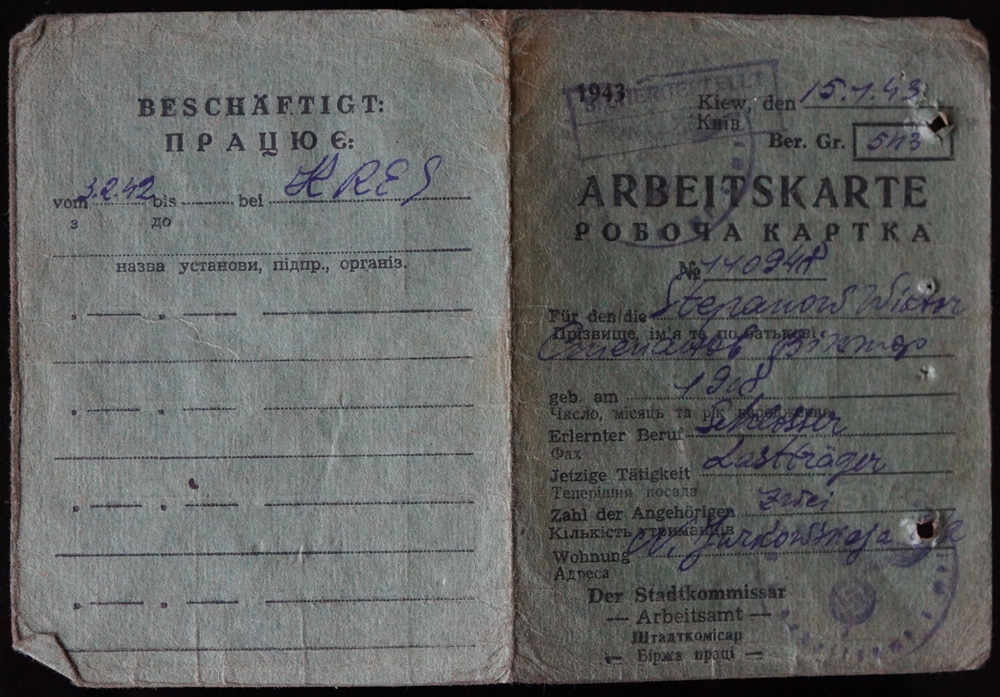 BESCHÄFTIGT:
ПРАЦЮЄ:
vom 3.2.42 bis bei KRES
з до
назва установи, підпр., організ.
1943
Kiew, den 15.1.43
Київ
Ber. Gr. 543
ARBEITSKARTE
РОБОЧА КАРТКА
№
Für den/die Stepanow Wiktor
Прізвище, ім'я та по батькові
Степанов Віктор
geb. am
Число, місяць та рік народження
Erlernter Beruf Schlosser
Фах
Jetzige Tätigkeit Lastträger
Теперішня посада
Zahl der Angehörigen zwei
Кількість утриманців
Wohnung
Адреса
Der Stadtkommissar
— Arbeitsamt —
Штадткомісар
— Біржа праці —